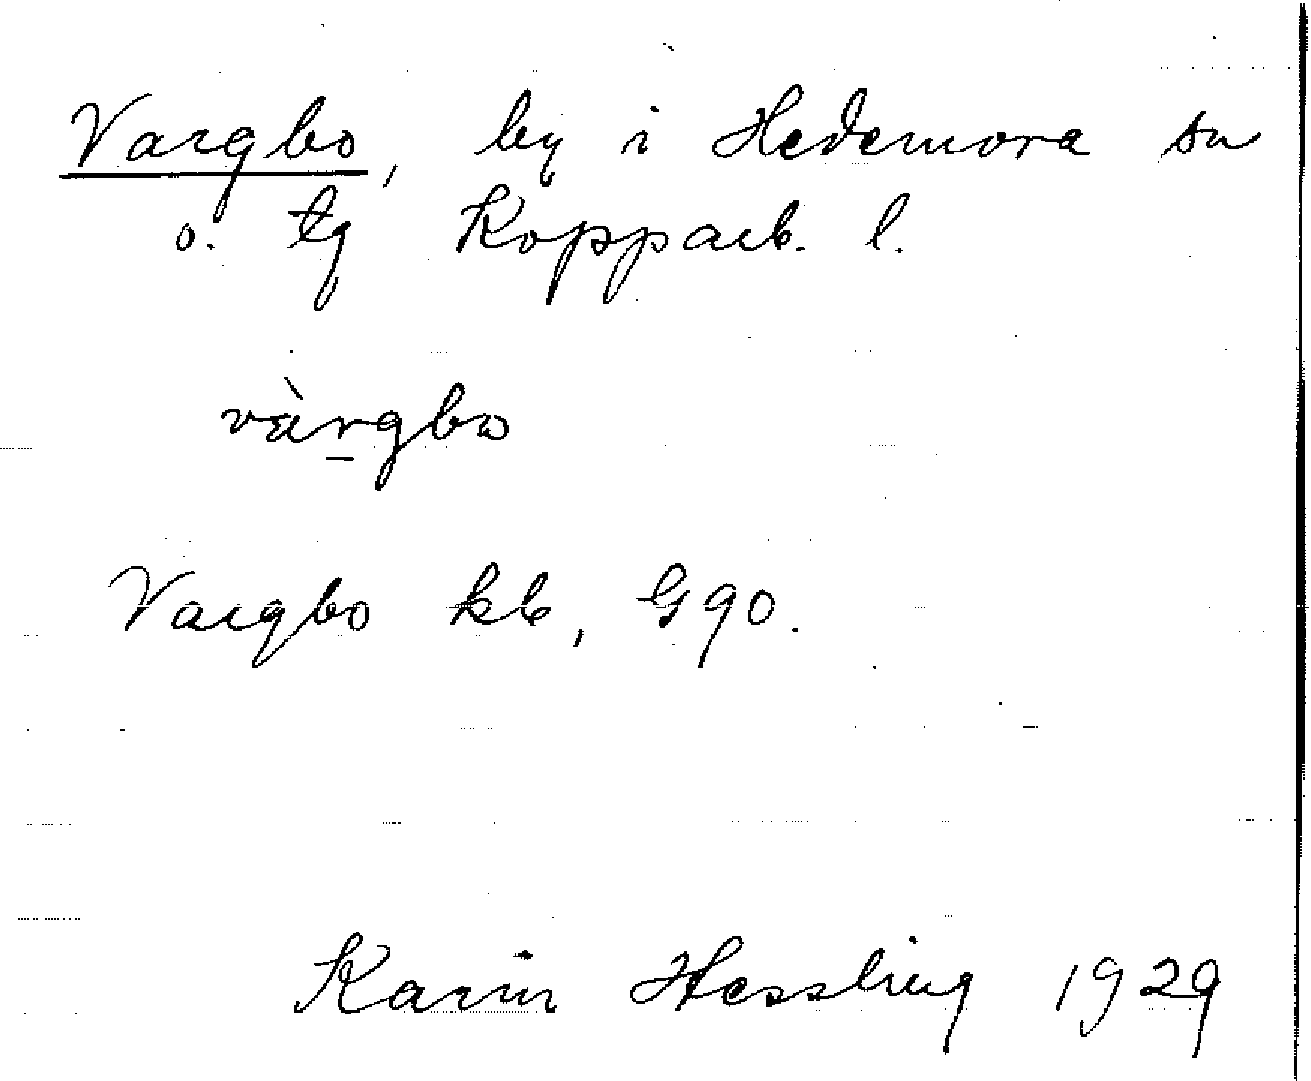 Vargbo, by i Hedemora sn
o. tg Kopparb. l.
vàr̲gbo
Vargbo kb, G90.
Karin Hessling 1929